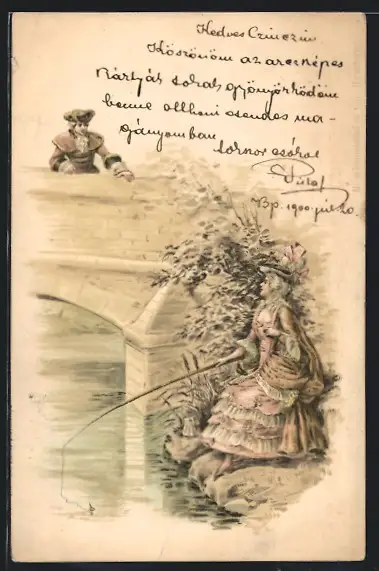 Kedves Czinczin
Köszönöm az arczképes
kártyát sokat gyönyörködöm
benne otthoni csendes ma-
gányomban
sokszor csókol
Bp. 1900. júl. 20.